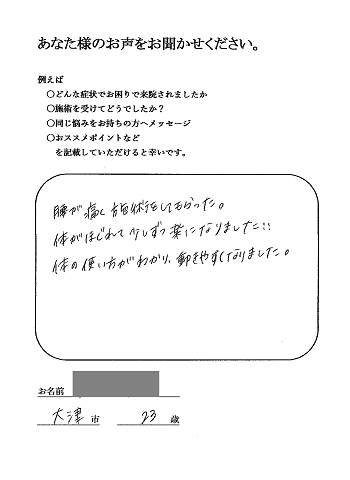 あなた様のお声をお聞かせください。
例えば
〇どんな症状でお困りで来院されましたか
〇施術を受けてどうでしたか？
〇同じ悩みをお持ちの方へメッセージ
〇おススメポイントなど
を記載していただけると幸いです。
腰が痛く施術をしてもらった。
体がほぐれて少しずつ楽になりました!!
体の使い方がわかり、動きやすくなりました。
お名前
大津 市 23 歳